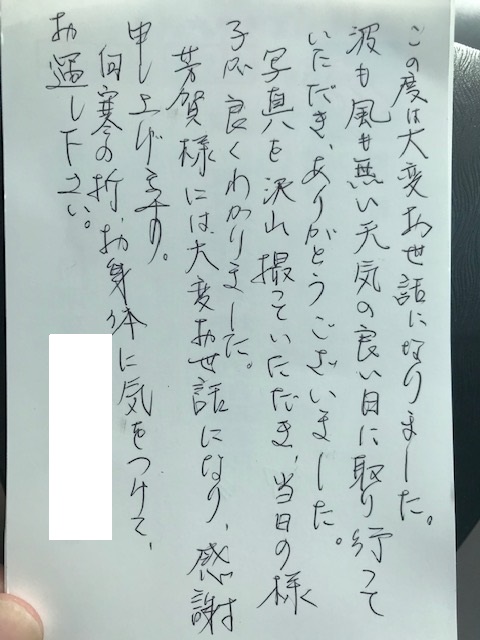 この度は大変お世話になりました。
波も風も無い天気の良い日に取り行って
いただき、ありがとうございました。
写真も沢山撮っていただき、当日の様
子が良くわかりました。
芳賀様には大変お世話になり、感謝
申し上げます。
向寒の折、お身体に気をつけて、
お過し下さい。